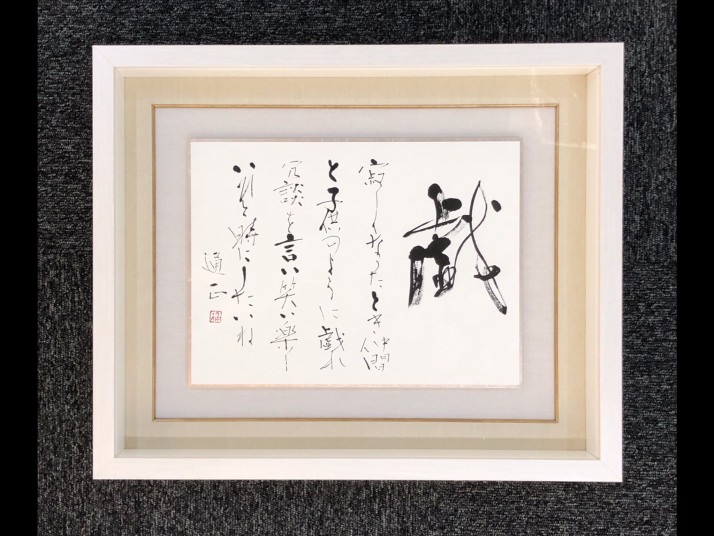 戯
寂しくなったとき仲間
と子供のように戯れ
冗談を言い笑い楽し
い時にしたいね
通正